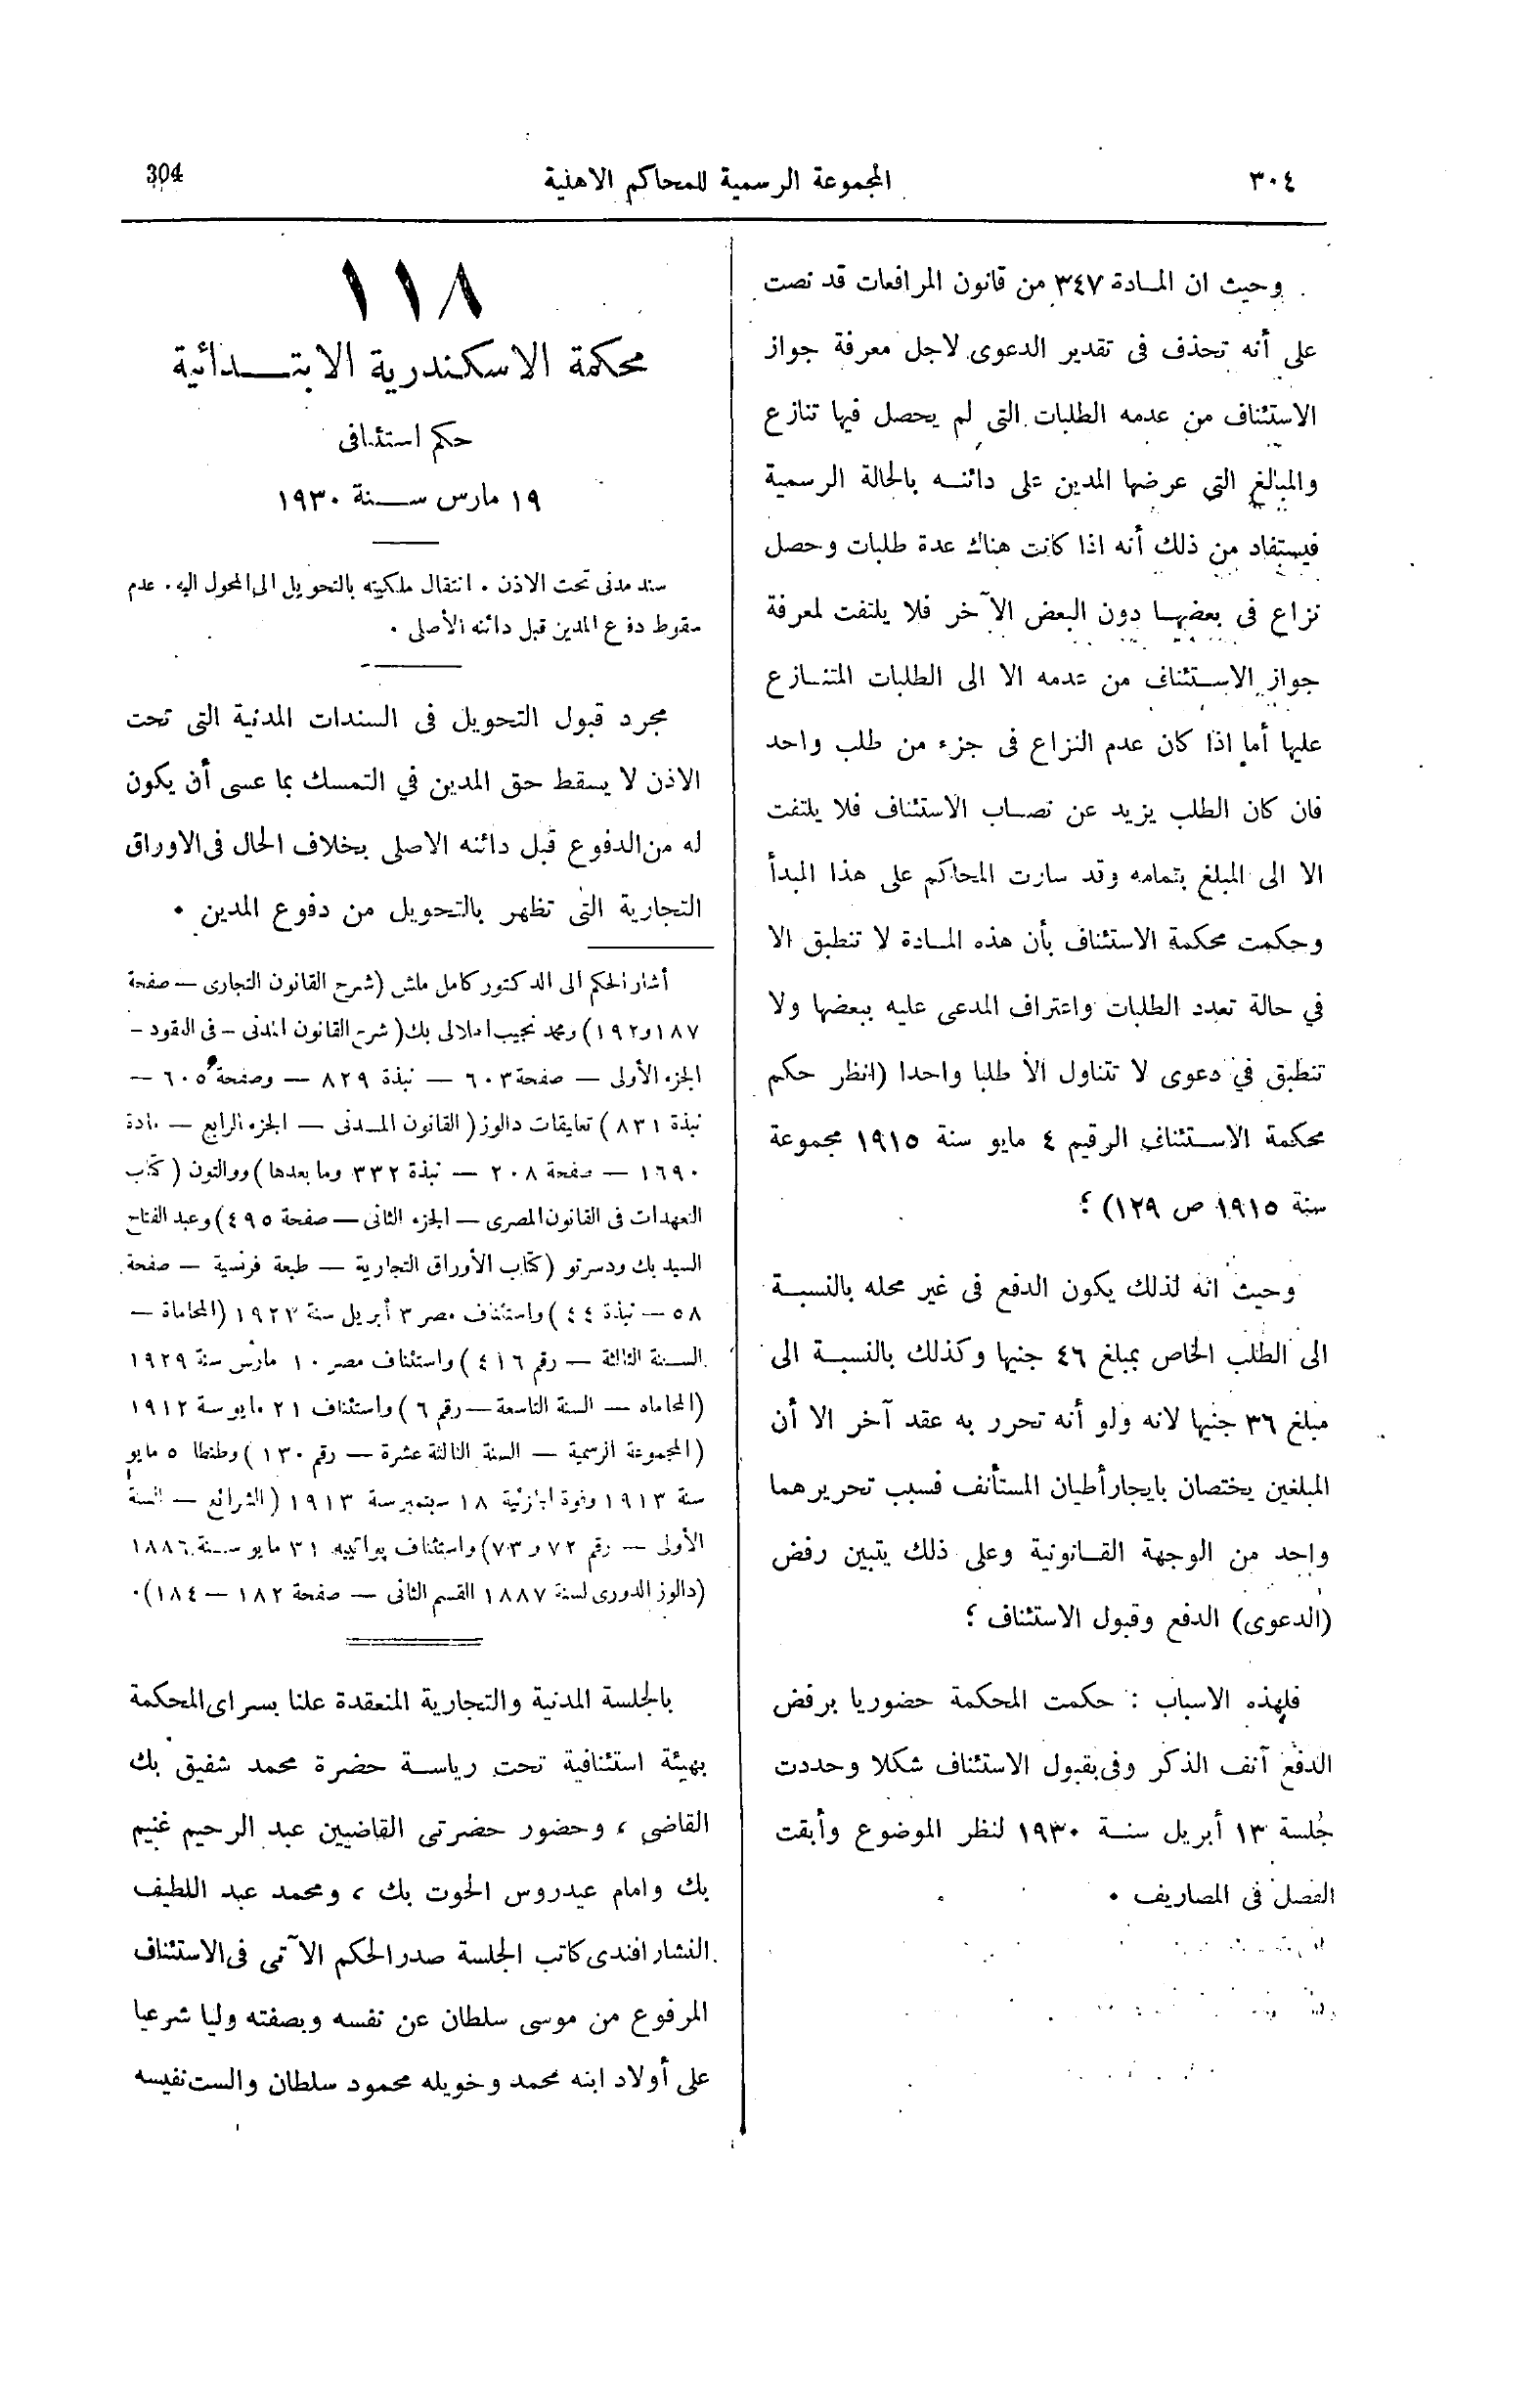 ٣٠٤
المجموعة الرسمية للمحاكم الاهلية
304
وحيث ان المادة ٣٤٧ من قانون المرافعات قد نصت
على أنه تحذف فى تقدير الدعوى لاجل معرفة جواز
الاستئناف من عدمه الطلبات التى لم يحصل فيها تنازع
والمبالغ التى عرضها المدين على دائنه بالحالة الرسمية
فيستفاد من ذلك أنه اذا كانت هناك عدة طلبات وحصل
نزاع فى بعضها دون البعض الآخر فلا يلتفت لمعرفة
جواز الاستئناف من عدمه الا الى الطلبات المتنازع
عليها أما اذا كان عدم النزاع فى جزء من طلب واحد
فان كان الطلب يزيد عن نصاب الاستئناف فلا يلتفت
الا الى المبلغ بتمامه وقد سارت المحاكم على هذا المبدأ
وحكمت محكمة الاستئناف بأن هذه المادة لا تنطبق الا
في حالة تعدد الطلبات واعتراف المدعى عليه ببعضها ولا
تنطبق في دعوى لا تتناول الا طلبا واحدا (انظر حكم
محكمة الاستئناف الرقيم ٤ مايو سنة ١٩١٥ مجموعة
سنة ١٩١٥ ص ١٢٩) ؛
وحيث انه لذلك يكون الدفع فى غير محله بالنسبة
الى الطلب الخاص بمبلغ ٤٦ جنيها وكذلك بالنسبة الى
مبلغ ٣٦ جنيها لانه ولو أنه تحرر به عقد آخر الا أن
المبلغين يختصان بايجار أطيان المستأنف فسبب تحريرهما
واحد من الوجهة القانونية وعلى ذلك يتبين رفض
(الدعوى) الدفع وقبول الاستئناف ؛
فلهذه الاسباب : حكمت المحكمة حضوريا برفض
الدفع آنف الذكر وفى بقبول الاستئناف شكلا وحددت
جلسة ١٣ أبريل سنة ١٩٣٠ لنظر الموضوع وأبقت
الفصل فى المصاريف .
١١٨
محكمة الاسكندرية الابتدائية
حكم استئنافى
١٩ مارس سنة ١٩٣٠
سند مدنى تحت الاذن . انتقال ملكيته بالتحويل الى المحول اليه . عدم
سقوط دفوع المدين قبل دائنه الأصلى .
مجرد قبول التحويل فى السندات المدنية التى تحت
الاذن لا يسقط حق المدين في التمسك بما عسى أن يكون
له من الدفوع قبل دائنه الاصلى بخلاف الحال فى الاوراق
التجارية التى تظهر بالتحويل من دفوع المدين .
أشار الحكم الى الدكتور كامل ملش (شرح القانون التجارى — صفحة
١٨٧ و١٩٢) ومحمد نجيب الهلالى بك (شرح القانون المدنى – فى العقود –
الجزء الأولى — صفحة ٦٠٣ — نبذة ٨٢٩ — وصفحة ٦٠٥ —
نبذة ٨٣١) تعليقات دالوز (القانون المدنى — الجزء الرابع — مادة
١٦٩٠ — صفحة ٢٠٨ — نبذة ٣٣٢ وما بعدها) ووالتون (كتاب
التعهدات فى القانون المصرى — الجزء الثانى — صفحة ٤٩٥) وعبد الفتاح
السيد بك ودسرتو (كتاب الأوراق التجارية — طبعة فرنسية — صفحة
٥٨ — نبذة ٤٤) واستئناف مصر ٣ أبريل سنة ١٩٢٣ (المحاماة —
السنة الثالثة — رقم ٤١٦) واستئناف مصر ١٠ مارس سنة ١٩٢٩
(المحاماه — السنة التاسعة — رقم ٦) واستئناف ٢١ مايو سنة ١٩١٢
(المجموعة الرسمية — السنة الثالثة عشرة — رقم ١٣٠) وطنطا ٥ مايو
سنة ١٩١٣ وفوة الجزئية ١٨ سبتمبر سنة ١٩١٣ (الشرائع — السنة
الأولى — رقم ٧٢ و٧٣) واستئناف پواتييه ٣١ مايو سنة ١٨٨٦
(دالوز الدورى لسنة ١٨٨٧ القسم الثانى — صفحة ١٨٢ — ١٨٤).
بالجلسة المدنية والتجارية المنعقدة علنا بسراى المحكمة
بهيئة استئنافية تحت رياسة حضرة محمد شفيق بك
القاضى ، وحضور حضرتى القاضيين عبد الرحيم غنيم
بك وامام عيدروس الحوت بك ، ومحمد عبد اللطيف
النشار افندى كاتب الجلسة صدر الحكم الآتى فى الاستئناف
المرفوع من موسى سلطان عن نفسه وبصفته وليا شرعيا
على أولاد ابنه محمد وخويله محمود سلطان والست نفيسه